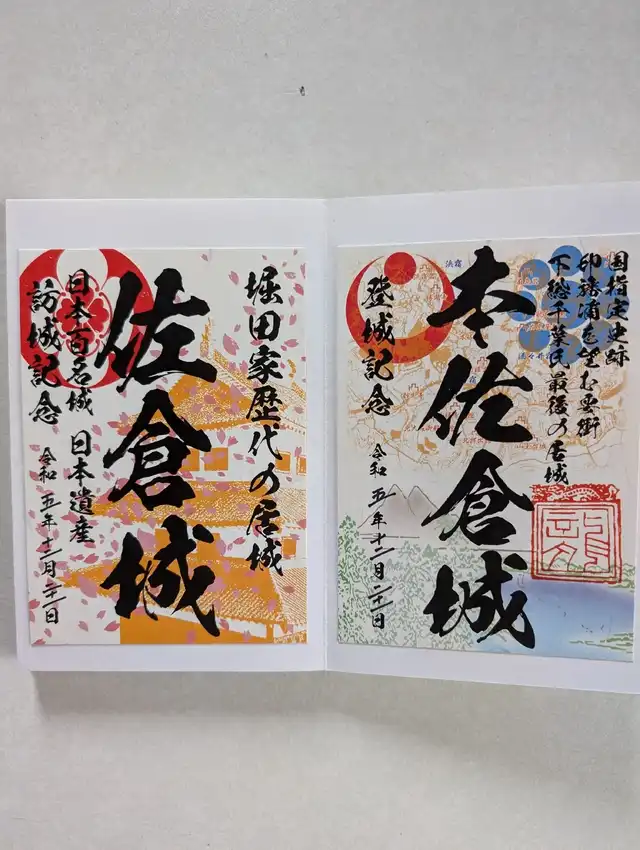 国指定史跡
印旛浦を望む要衝
下総千葉氏最後の居城
本佐倉城
登城記念
令和五年十二月二十一日
浜宿
堀田家歴代の居城
佐倉城
日本百名城 日本遺産
訪城記念
令和五年十二月二十一日